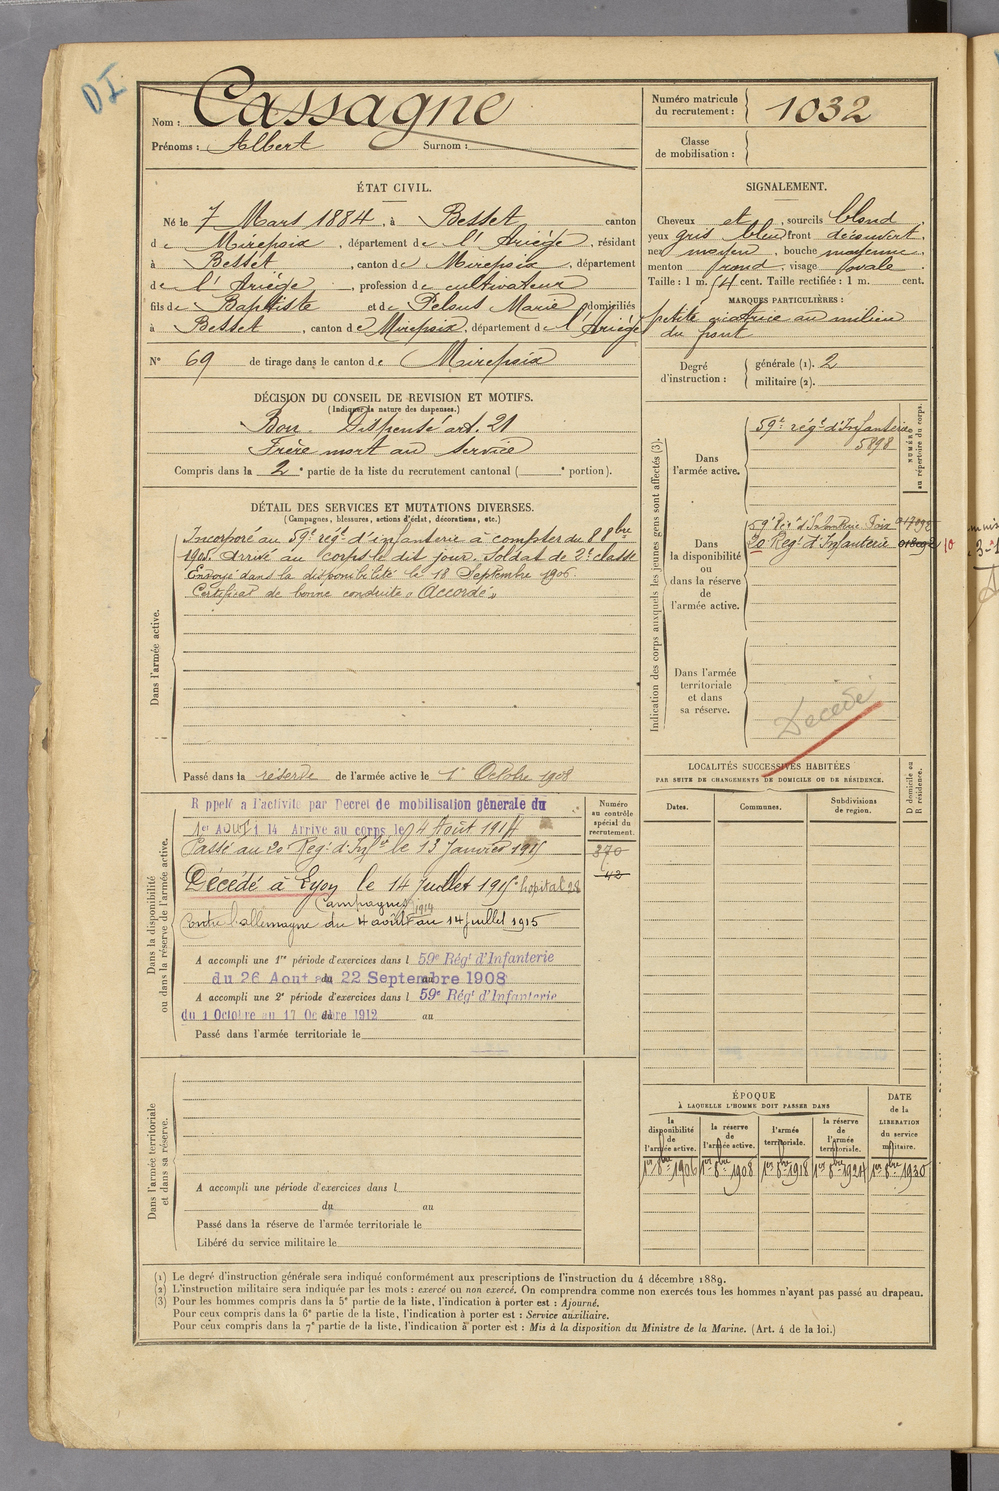 DI
Nom : Cassagne
Prénoms : Albert Surnom :
Numéro matricule du recrutement : 1032
Classe de mobilisation :
ÉTAT CIVIL.
Né le 7 Mars 1884, à Besset canton
de Mirepoix, département de l'Ariége, résidant
à Besset, canton de Mirepoix, département
de l'Ariége, profession de cultivateur
fils de Baptiste et de Pelous Marie domiciliés
à Besset, canton de Mirepoix, département de l'Ariége
N° 69 de tirage dans le canton de Mirepoix
SIGNALEMENT.
Cheveux et, sourcils blond
yeux gris bleu front découvert,
nez moyen, bouche moyenne
menton rond, visage ovale
Taille : 1 m. 54 cent. Taille rectifiée : 1 m. cent.
MARQUES PARTICULIÈRES :
petite cicatrice au milieu
du front
Degré d'instruction : générale (1). 2
militaire (2).
DÉCISION DU CONSEIL DE REVISION ET MOTIFS.
(Indiquer la nature des dispenses.)
Bon. Dispensé art. 21
Frère mort au service
Compris dans la 2e partie de la liste du recrutement cantonal ( e portion).
DÉTAIL DES SERVICES ET MUTATIONS DIVERSES.
(Campagnes, blessures, actions d'éclat, décorations, etc.)
Dans l'armée active.
Incorporé au 59e régt d'infanterie à compter du 8 8bre
1905. Arrivé au corps le dit jour. Soldat de 2e classe
Envoyé dans la disponibilité le 18 Septembre 1906.
Certificat de bonne conduite « Accordé »
Passé dans la réserve de l'armée active le 1er Octobre 1908
Indication des corps auxquels les jeunes gens sont affectés (3).
NUMÉRO au répertoire du corps.
Dans l'armée active.
59e régt d'Infanterie
5898
Dans la disponibilité ou dans la réserve de l'armée active.
59e Régt d'Infanterie Foix
20 Regt d'Infanterie
10
Dans l'armée territoriale et dans sa réserve.
Décédé
LOCALITÉS SUCCESSIVES HABITÉES
PAR SUITE DE CHANGEMENTS DE DOMICILE OU DE RÉSIDENCE.
D domicile ou R résidence.
Dates. Communes. Subdivisions de region.
Dans la disponibilité
ou dans la réserve de l'armée active.
Numéro au contrôle spécial du recrutement.
R ppelé a l'activité par Decret de mobilisation générale du
1er Aout 1 14 Arrivé au corps le 4 Août 1914
Passé au 20 Regt d'Infie le 13 Janvier 1915
370
42
Décédé à Lyon le 14 juillet 1915 hopital 28
Campagnes
1914
Contre l'allemagne du 4 août au 14 juillet 1915
A accompli une 1re période d'exercices dans l 59e Régt d'Infanterie
du 26 Aout au 22 Septembre 1908
A accompli une 2e période d'exercices dans l 59e Régt d'Infanterie
du 1 Octobre au 17 Octobre 1912 au
Passé dans l'armée territoriale le
Dans l'armée territoriale
et dans sa réserve.
A accompli une période d'exercices dans l
du au
Passé dans la réserve de l'armée territoriale le
Libéré du service militaire le
ÉPOQUE
À LAQUELLE L'HOMME DOIT PASSER DANS
la disponibilité de l'armée active.
la réserve de l'armée active.
l'armée territoriale.
la réserve de l'armée territoriale.
DATE de la LIBÉRATION du service militaire.
1er 8bre 1906 1er 8bre 1908 1er 8bre 1918 1er 8bre 1924 1er 8bre 1930
(1) Le degré d'instruction générale sera indiqué conformément aux prescriptions de l'instruction du 4 décembre 1889.
(2) L'instruction militaire sera indiquée par les mots : exercé ou non exercé. On comprendra comme non exercés tous les hommes n'ayant pas passé au drapeau.
(3) Pour les hommes compris dans la 5e partie de la liste, l'indication à porter est : Ajourné.
Pour ceux compris dans la 6e partie de la liste, l'indication à porter est : Service auxiliaire.
Pour ceux compris dans la 7e partie de la liste, l'indication à porter est : Mis à la disposition du Ministre de la Marine. (Art. 4 de la loi.)